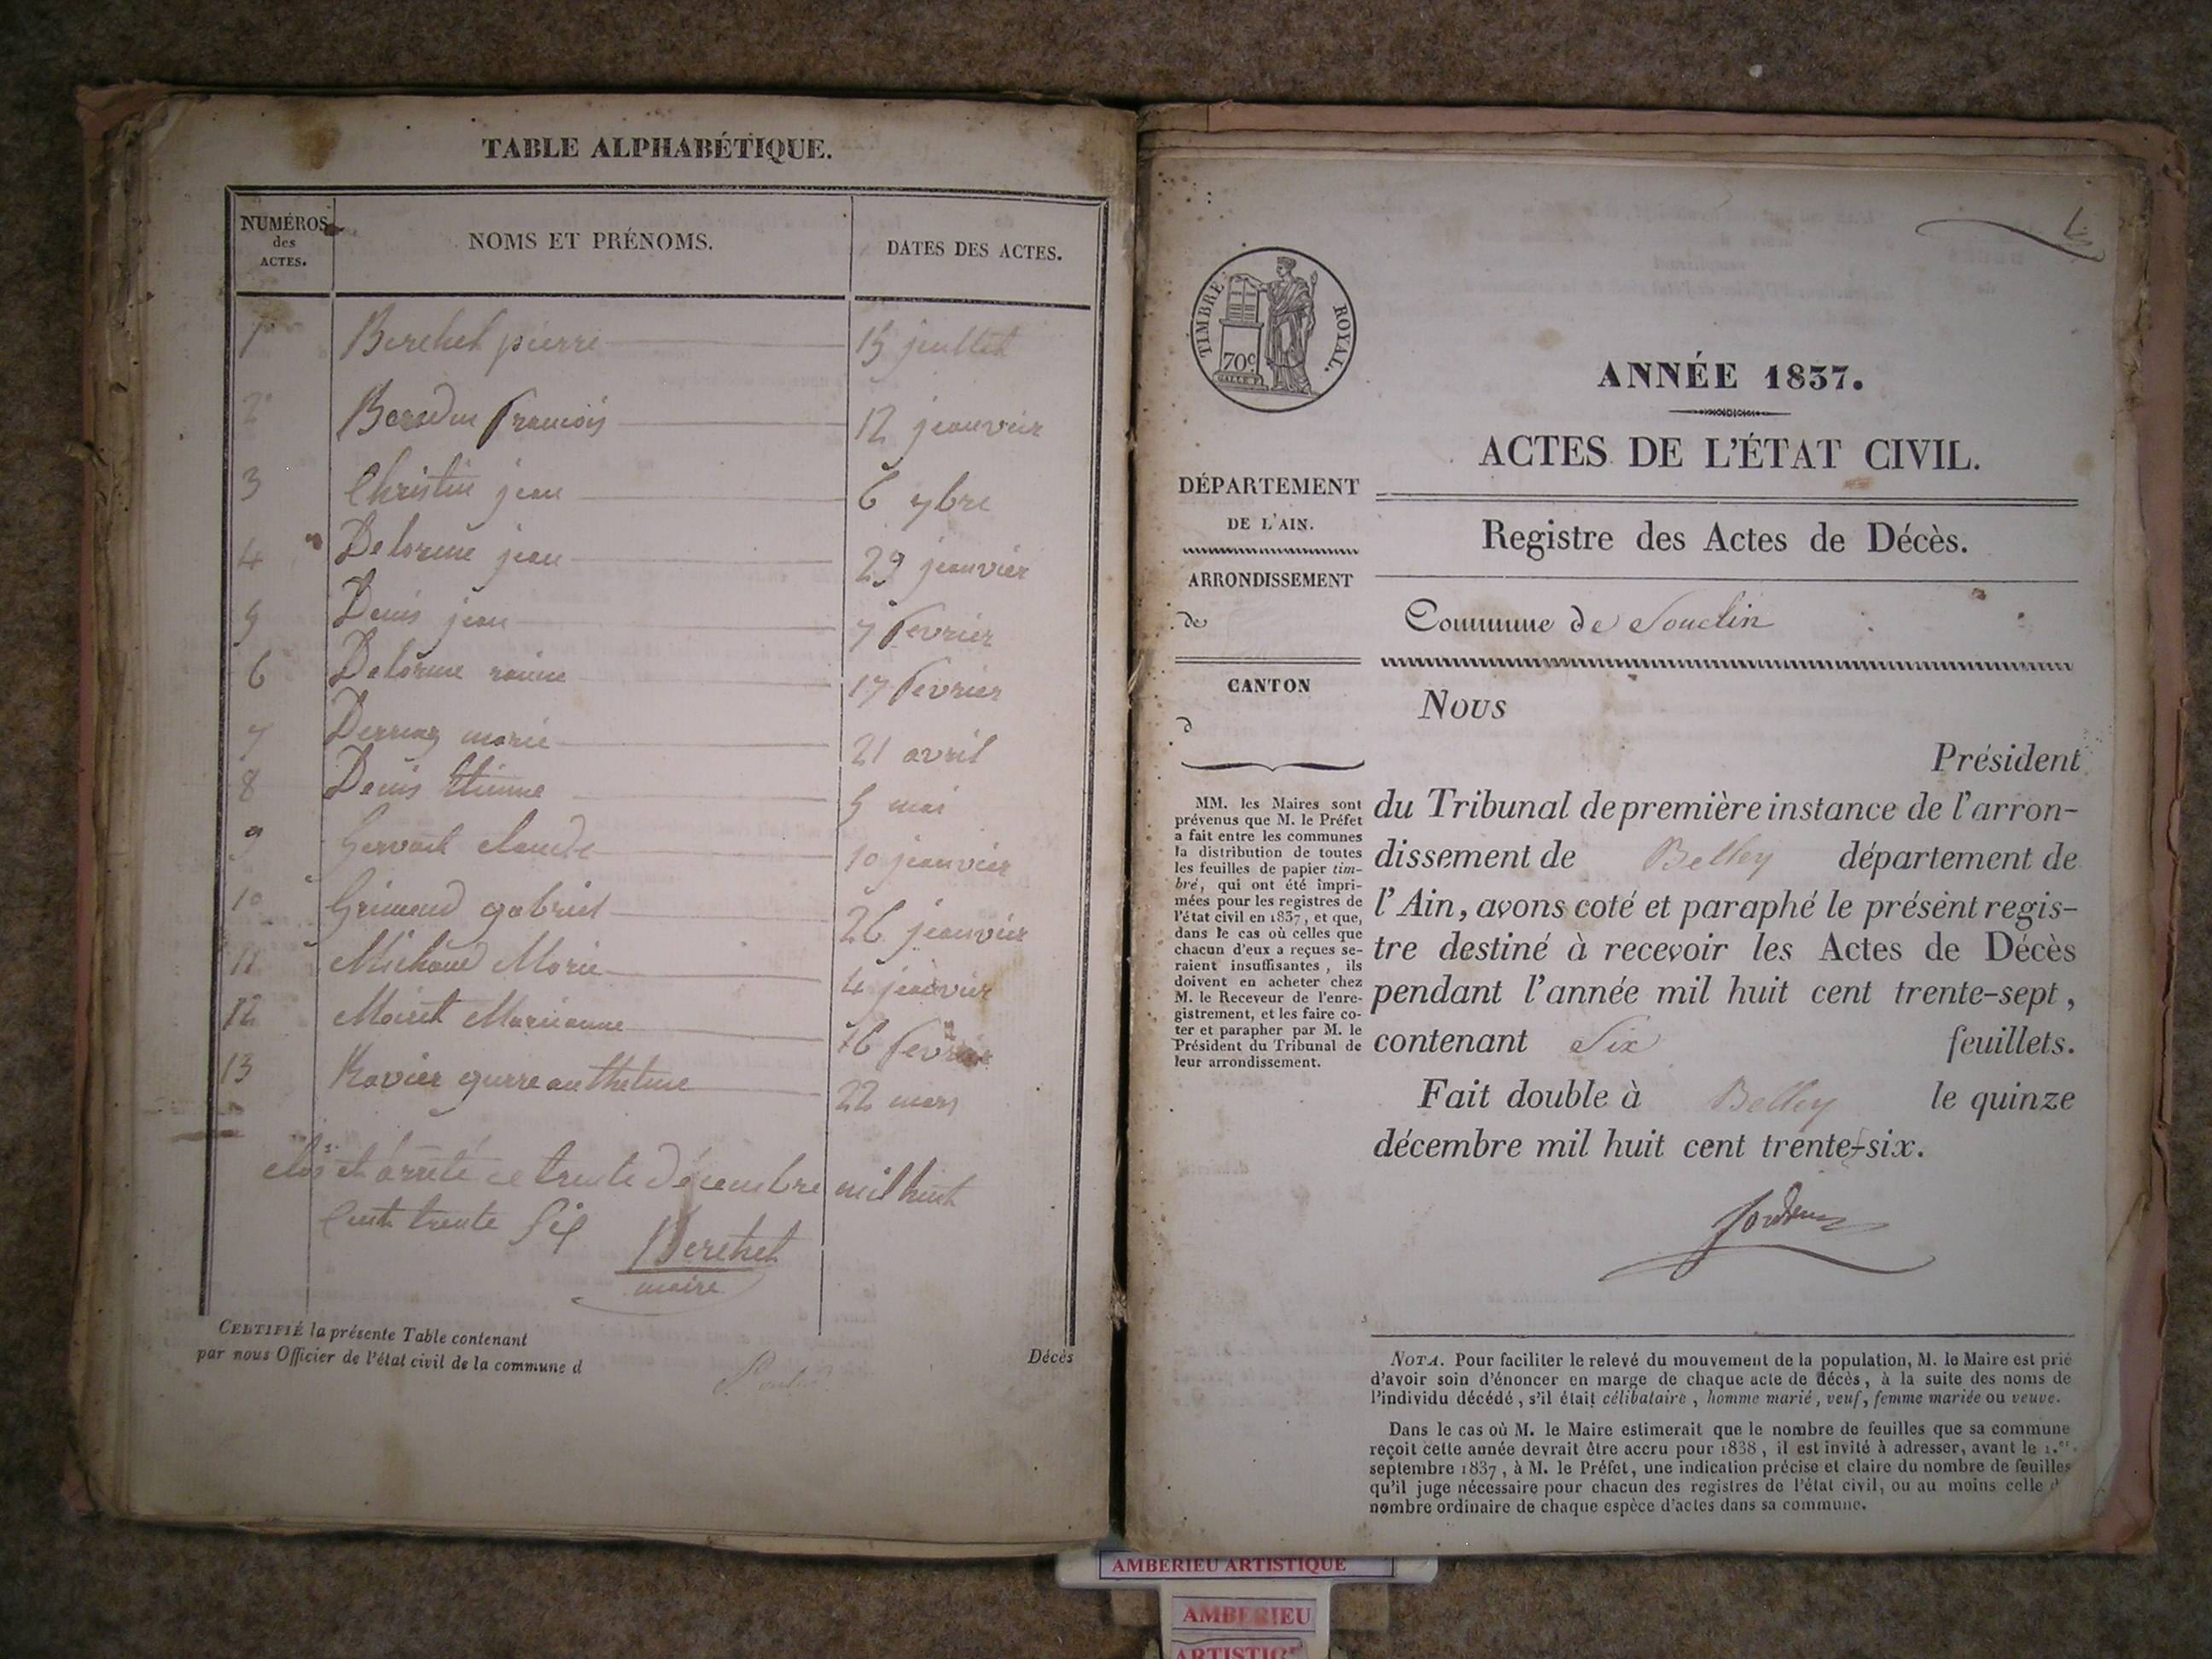 TABLE ALPHABÉTIQUE.
NUMÉROS
des
ACTES.
NOMS ET PRÉNOMS.
DATES DES ACTES.
1 Berchet pierre 15 juillet
2 francois 12 jeanvier
3 Christin jean 6 7bre
4 Delorme jean 29 jeanvier
5 Denis jean 7 fevrier
6 Delorme 17 fevrier
7 marie 21 avril
8 Denis Etienne 5 mai
9 claude 10 jeanvier
10 Grimaud gabriel 26 jeanvier
11 Michaud Marie 4 jeanvier
12 Moiret Marianne 16 fevrier
13 Ravier 22 mars
clos et arreté ce trente décembre mil huit
Cent trente six
Berchet
maire
CERTIFIÉ la présente Table contenant
Décès
par nous Officier de l'état civil de la commune d
TIMBRE ROYAL.
70c
ANNÉE 1837.
ACTES DE L'ÉTAT CIVIL.
Registre des Actes de Décès.
Commune de Souclin
DÉPARTEMENT
DE L'AIN.
ARRONDISSEMENT
de
CANTON
d
MM. les Maires sont
prévenus que M. le Préfet
a fait entre les communes
la distribution de toutes
les feuilles de papier tim-
bré, qui ont été impri-
mées pour les registres de
l'état civil en 1837, et que,
dans le cas où celles que
chacun d'eux a reçues se-
raient insuffisantes, ils
doivent en acheter chez
M. le Receveur de l'enre-
gistrement, et les faire co-
ter et parapher par M. le
Président du Tribunal de
leur arrondissement.
Nous
Président
du Tribunal de première instance de l'arron-
dissement de Belley département de
l'Ain, avons coté et paraphé le présent regis-
tre destiné à recevoir les Actes de Décès
pendant l'année mil huit cent trente-sept,
contenant Six feuillets.
Fait double à Belley le quinze
décembre mil huit cent trente-six.
NOTA. Pour faciliter le relevé du mouvement de la population, M. le Maire est prié
d'avoir soin d'énoncer en marge de chaque acte de décès, à la suite des noms de
l'individu décédé, s'il était célibataire, homme marié, veuf, femme mariée ou veuve.
Dans le cas où M. le Maire estimerait que le nombre de feuilles que sa commune
reçoit cette année devrait être accru pour 1838, il est invité à adresser, avant le 1.er
septembre 1837, à M. le Préfet, une indication précise et claire du nombre de feuilles
qu'il juge nécessaire pour chacun des registres de l'état civil, ou au moins celle d
nombre ordinaire de chaque espèce d'actes dans sa commune.
AMBERIEU ARTISTIQUE
AMBERIEU